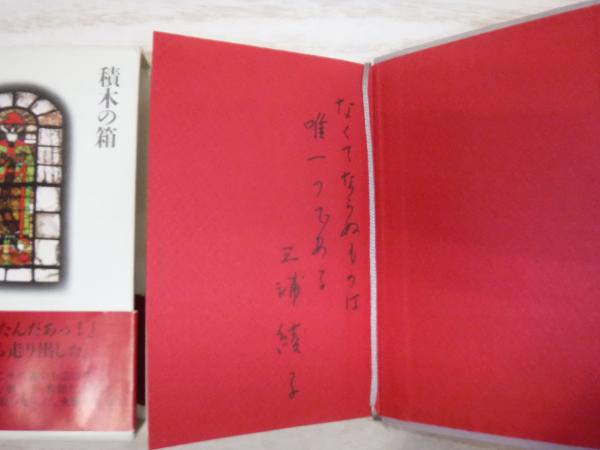 積木の箱
たんだあっ！」
ら走り出した。
なくてならぬものは
唯一つである
三浦綾子